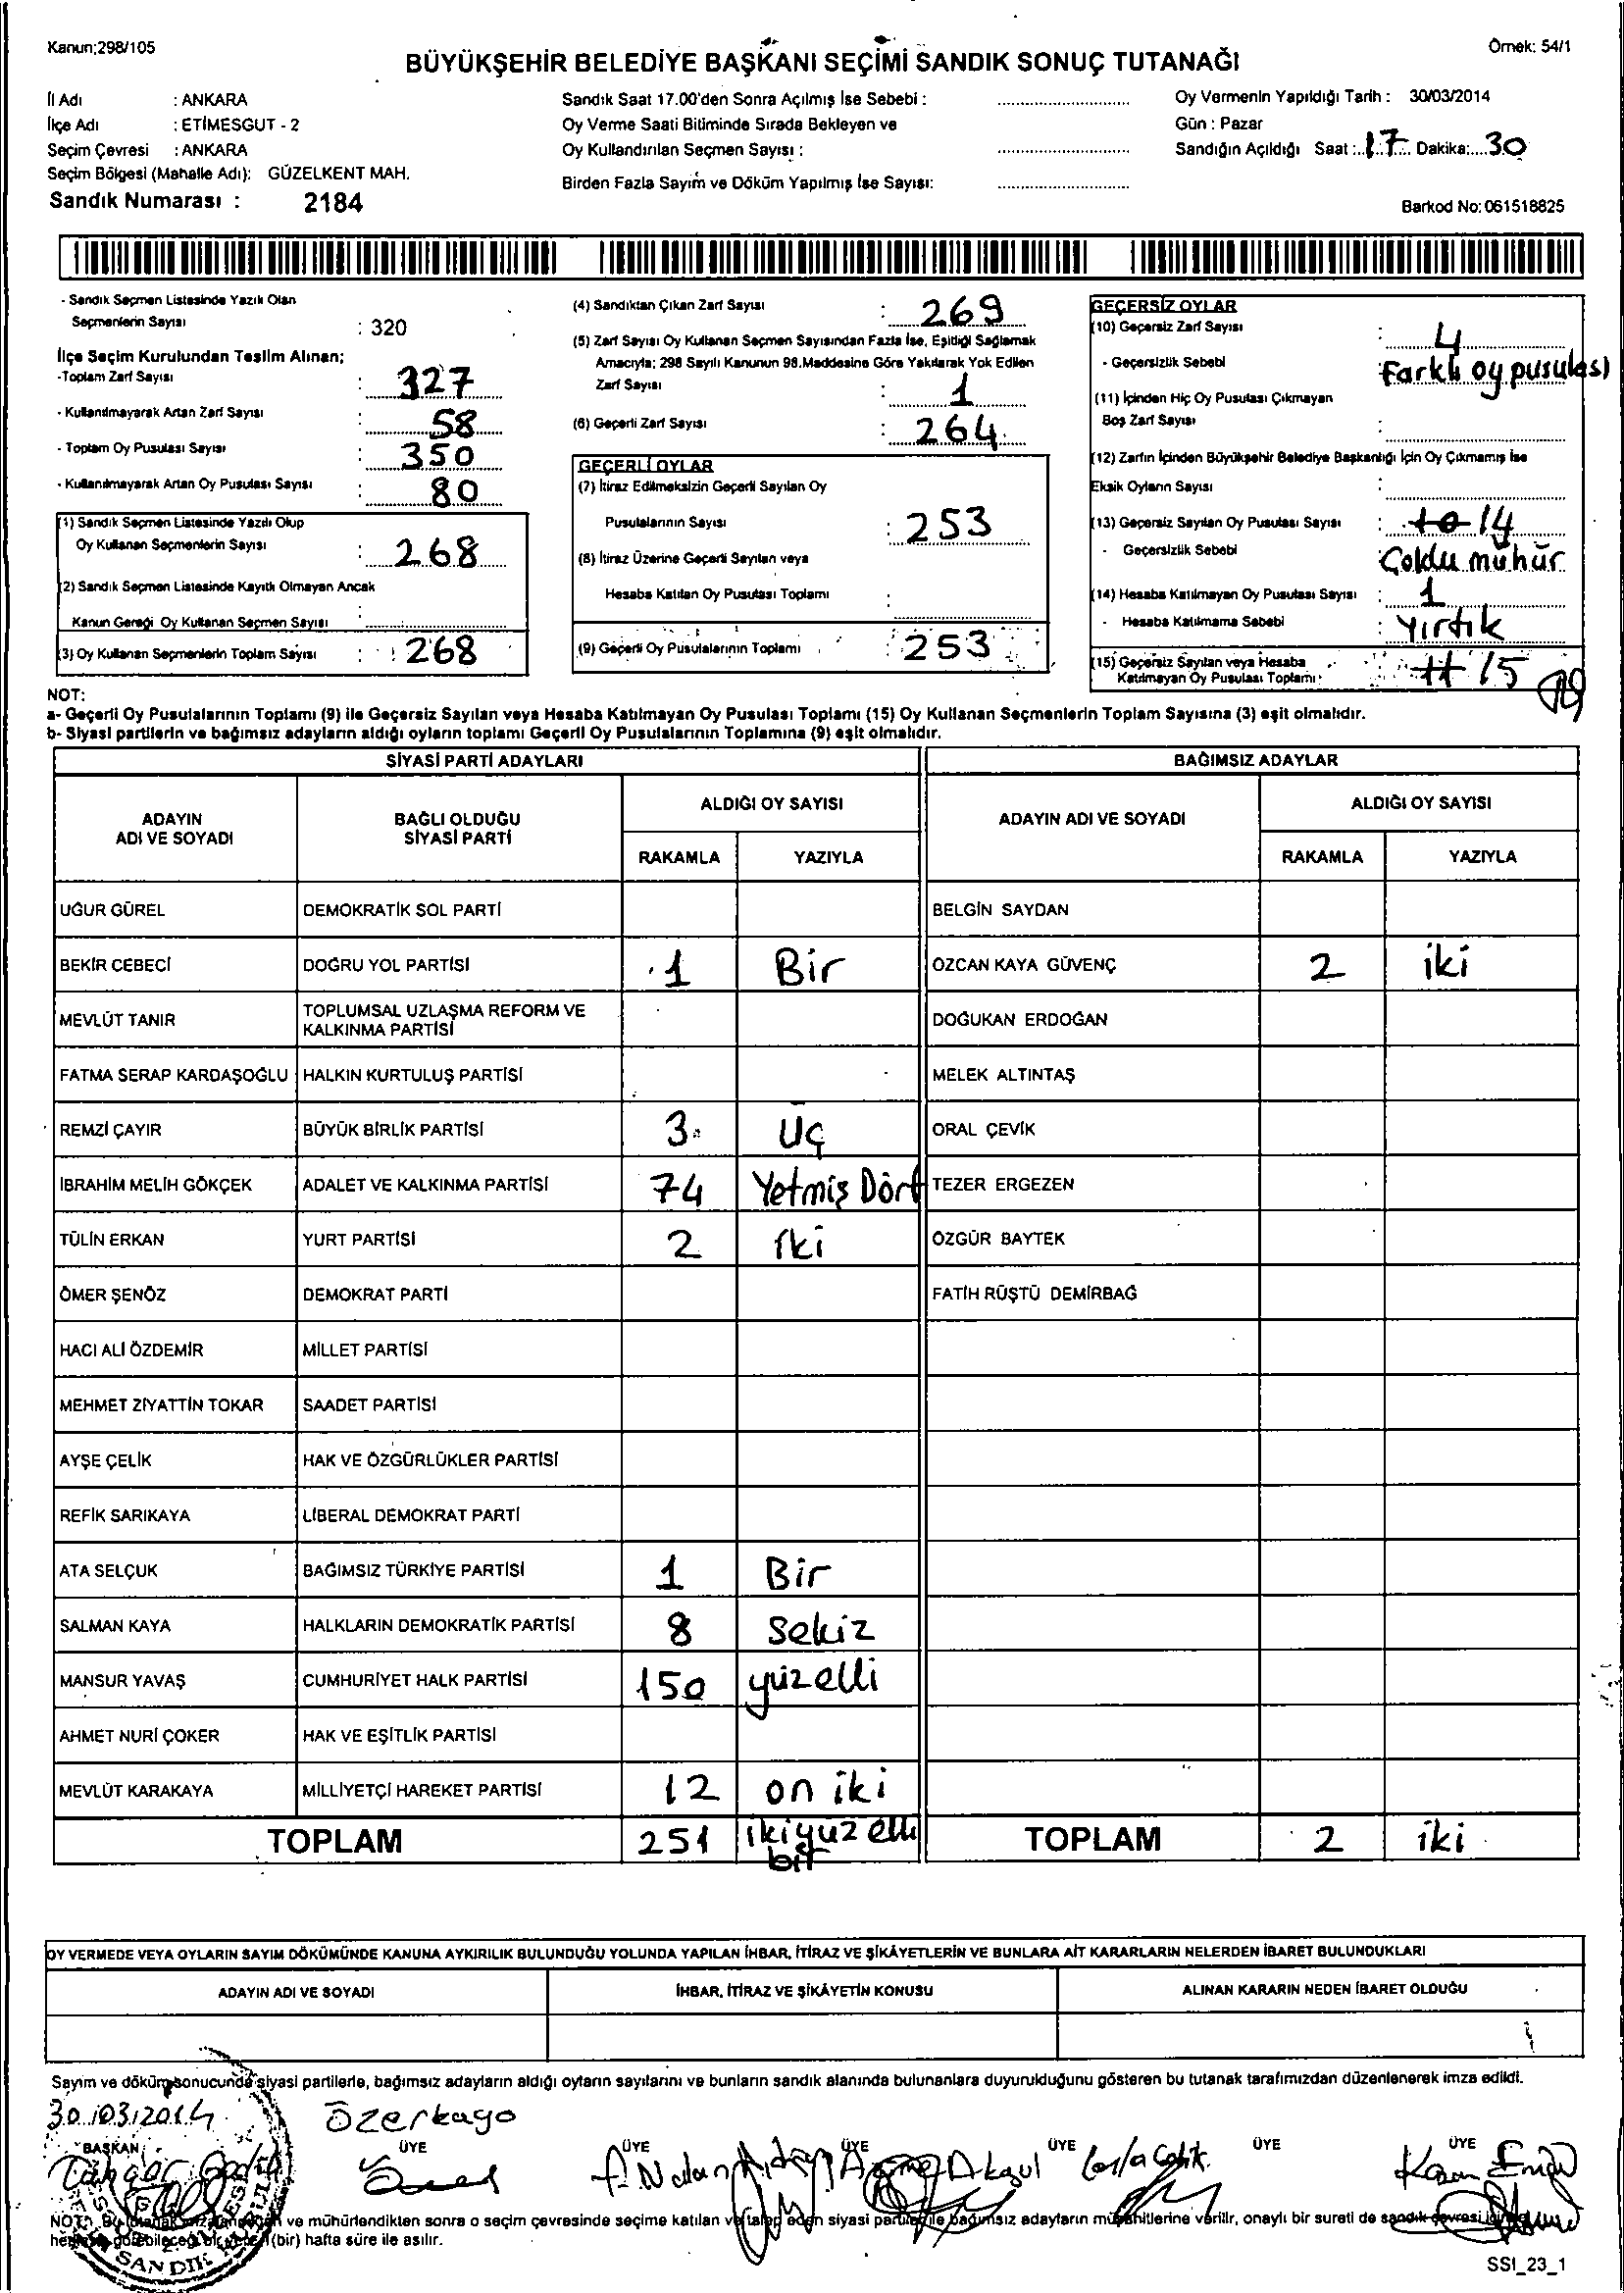 Kanun;298/105
Örnek: 54/1
BÜYÜKŞEHİR BELEDİYE BAŞKANI SEÇİMİ SANDIK SONUÇ TUTANAĞI
İl Adı : ANKARA
İlçe Adı : ETİMESGUT - 2
Seçim Çevresi : ANKARA
Seçim Bölgesi (Mahalle Adı): GÜZELKENT MAH.
Sandık Numarası : 2184
Sandık Saat 17.00'den Sonra Açılmış İse Sebebi :
Oy Verme Saati Bitiminde Sırada Bekleyen ve
Oy Kullandırılan Seçmen Sayısı :
Birden Fazla Sayım ve Döküm Yapılmış İse Sayısı:
Oy Vermenin Yapıldığı Tarih : 30/03/2014
Gün : Pazar
Sandığın Açıldığı Saat : 17 Dakika: 30
Barkod No: 061518825
- Sandık Seçmen Listesinde Yazılı Olan
Seçmenlerin Sayısı : 320
İlçe Seçim Kurulundan Teslim Alınan;
-Toplam Zarf Sayısı : 327
- Kullanılmayarak Artan Zarf Sayısı : 58
- Toplam Oy Pusulası Sayısı : 350
- Kullanılmayarak Artan Oy Pusulası Sayısı : 80
(1) Sandık Seçmen Listesinde Yazılı Olup
Oy Kullanan Seçmenlerin Sayısı : 268
(2) Sandık Seçmen Listesinde Kayıtlı Olmayan Ancak
Kanun Gereği Oy Kullanan Seçmen Sayısı :
(3) Oy Kullanan Seçmenlerin Toplam Sayısı : 268
(4) Sandıktan Çıkan Zarf Sayısı : 269
(5) Zarf Sayısı Oy Kullanan Seçmen Sayısından Fazla İse, Eşitliği Sağlamak
Amacıyla; 298 Sayılı Kanunun 98.Maddesine Göre Yakılarak Yok Edilen
Zarf Sayısı : 1
(6) Geçerli Zarf Sayısı : 264
GEÇERLİ OYLAR
(7) İtiraz Edilmeksizin Geçerli Sayılan Oy
Pusulalarının Sayısı : 253
(8) İtiraz Üzerine Geçerli Sayılan veya
Hesaba Katılan Oy Pusulası Toplamı :
(9) Geçerli Oy Pusulalarının Toplamı : 253
GEÇERSİZ OYLAR
(10) Geçersiz Zarf Sayısı : 4
- Geçersizlik Sebebi Farklı oy pusulası
(11) İçinden Hiç Oy Pusulası Çıkmayan
Boş Zarf Sayısı :
(12) Zarfın İçinden Büyükşehir Belediye Başkanlığı İçin Oy Çıkmamış İse
Eksik Oyların Sayısı :
(13) Geçersiz Sayılan Oy Pusulası Sayısı : 10 14
- Geçersizlik Sebebi Çoklu mühür
(14) Hesaba Katılmayan Oy Pusulası Sayısı : 1
- Hesaba Katılmama Sebebi : Yırtık
(15) Geçersiz Sayılan veya Hesaba
Katılmayan Oy Pusulası Toplamı : 11 15
NOT:
a- Geçerli Oy Pusulalarının Toplamı (9) ile Geçersiz Sayılan veya Hesaba Katılmayan Oy Pusulası Toplamı (15) Oy Kullanan Seçmenlerin Toplam Sayısına (3) eşit olmalıdır.
b- Siyasi partilerin ve bağımsız adayların aldığı oyların toplamı Geçerli Oy Pusulalarının Toplamına (9) eşit olmalıdır.
SİYASİ PARTİ ADAYLARI
BAĞIMSIZ ADAYLAR
ADAYIN
ADI VE SOYADI
BAĞLI OLDUĞU
SİYASİ PARTİ
ALDIĞI OY SAYISI
RAKAMLA YAZIYLA
ADAYIN ADI VE SOYADI
ALDIĞI OY SAYISI
RAKAMLA YAZIYLA
UĞUR GÜREL DEMOKRATİK SOL PARTİ BELGİN SAYDAN
BEKİR CEBECİ DOĞRU YOL PARTİSİ 1 Bir ÖZCAN KAYA GÜVENÇ 2 iki
MEVLÜT TANIR TOPLUMSAL UZLAŞMA REFORM VE
KALKINMA PARTİSİ DOĞUKAN ERDOĞAN
FATMA SERAP KARDAŞOĞLU HALKIN KURTULUŞ PARTİSİ MELEK ALTINTAŞ
REMZİ ÇAYIR BÜYÜK BİRLİK PARTİSİ 3 Üç ORAL ÇEVİK
İBRAHİM MELİH GÖKÇEK ADALET VE KALKINMA PARTİSİ 74 Yetmiş Dört TEZER ERGEZEN
TÜLİN ERKAN YURT PARTİSİ 2 İki ÖZGÜR BAYTEK
ÖMER ŞENÖZ DEMOKRAT PARTİ FATİH RÜŞTÜ DEMİRBAĞ
HACI ALİ ÖZDEMİR MİLLET PARTİSİ
MEHMET ZİYATTİN TOKAR SAADET PARTİSİ
AYŞE ÇELİK HAK VE ÖZGÜRLÜKLER PARTİSİ
REFİK SARIKAYA LİBERAL DEMOKRAT PARTİ
ATA SELÇUK BAĞIMSIZ TÜRKİYE PARTİSİ 1 Bir
SALMAN KAYA HALKLARIN DEMOKRATİK PARTİSİ 8 Sekiz
MANSUR YAVAŞ CUMHURİYET HALK PARTİSİ 150 yüzelli
AHMET NURİ ÇOKER HAK VE EŞİTLİK PARTİSİ
MEVLÜT KARAKAYA MİLLİYETÇİ HAREKET PARTİSİ 12 on iki
TOPLAM 251 ikiyüz elli
bir
TOPLAM 2 iki
OY VERMEDE VEYA OYLARIN SAYIM DÖKÜMÜNDE KANUNA AYKIRILIK BULUNDUĞU YOLUNDA YAPILAN İHBAR, İTİRAZ VE ŞİKÂYETLERİN VE BUNLARA AİT KARARLARIN NELERDEN İBARET BULUNDUKLARI
ADAYIN ADI VE SOYADI İHBAR, İTİRAZ VE ŞİKÂYETİN KONUSU ALINAN KARARIN NEDEN İBARET OLDUĞU
Sayım ve döküm sonucunda siyasi partilerle, bağımsız adayların aldığı oyların sayılarını ve bunların sandık alanında bulunanlara duyurulduğunu gösteren bu tutanak tarafımızdan düzenlenerek imza edildi.
30/03/2014
BAŞKAN ÜYE ÜYE ÜYE ÜYE ÜYE ÜYE
NOT: Bu ve mühürlendikten sonra o seçim çevresinde seçime katılan ve talep eden siyasi partiler ile bağımsız adayların müşahitlerine verilir, onaylı bir sureti de sandık çevresi
(bir) hafta süre ile asılır.
SANDIK
SSI_23_1